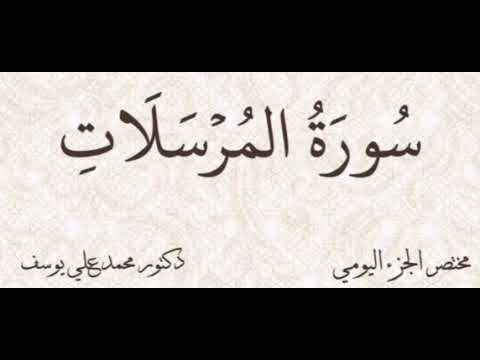 سُورَةُ المُرْسَلَاتِ
مختصر الجزء اليومي
دكتور محمد علي يوسف